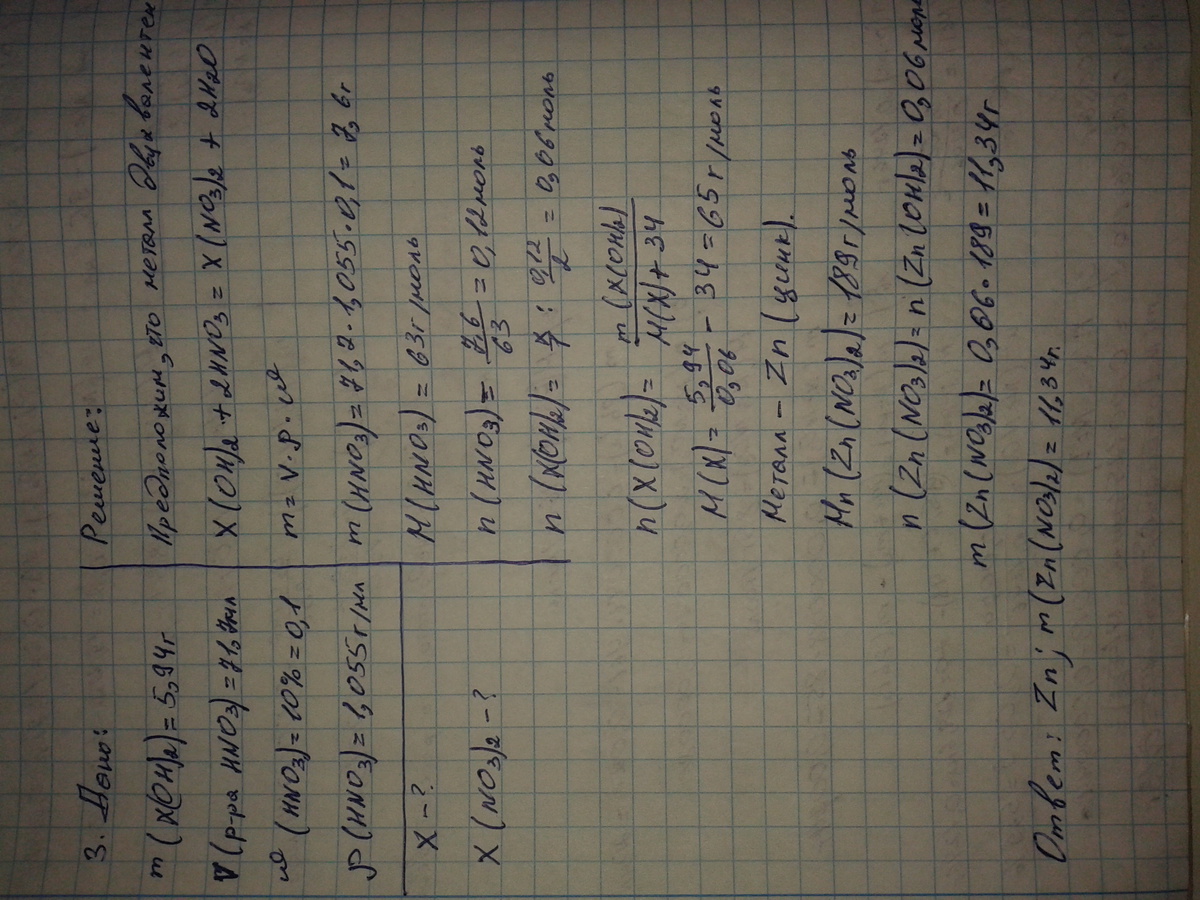 3. Дано:
m (X(OH)2) = 5,94г
V (р-ра HNO3) = 71,7мл
ω (HNO3) = 10% = 0,1
ρ (HNO3) = 1,055г/мл
X - ?
X (NO3)2 - ?
Решение:
Предположим, что металл двухвалентен
X(OH)2 + 2HNO3 = X(NO3)2 + 2H2O
m = V · ρ · ω
m(HNO3) = 71,2 · 1,055 · 0,1 = 7,6г
M(HNO3) = 63г/моль
n(HNO3) = 7,6/63 = 0,12моль
n (X(OH)2) = : 0,12/2 = 0,06моль
n(X(OH)2) = m(X(OH)2)/M(X) + 34
M(X) = 5,94/0,06 - 34 = 65г/моль
Металл - Zn (цинк).
Mn (Zn(NO3)2) = 189г/моль
n (Zn(NO3)2) = n (Zn(OH)2) = 0,06моль
m (Zn(NO3)2) = 0,06 · 189 = 11,34г
Ответ: Zn; m (Zn(NO3)2) = 11,34г.